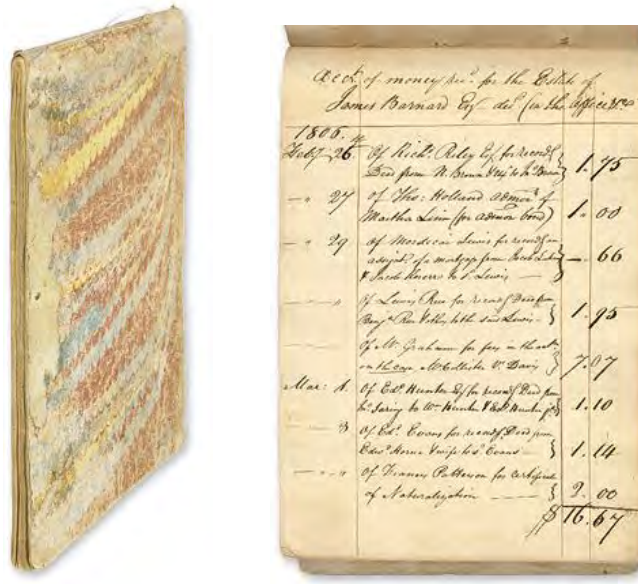 Acct. of money rec. for the Estate of
James Barnard Esq dec. (in the office &c
1806.
Feby 26 Of Rich. Riley Esq for record
Deed from N. Brown & to 1.75
- " 27 Of Tho: Holland admor. of
Martha (for admon bond) 1.00
- " 29 Of Mordecai Lewis for record an
assignt. of a mortgage from Jacob
& Jacob to s. Lewis — 66
Of Lewis for record Deed from
Benj. & others to the said Lewis 1.95
Of M. Graham for fees in the
in the case McCollister V. Davis 7.07
Mar: 1. Of Ed. Hunter Esq for record Deed from
to Wm Hunter & Hunter 1.10
3 Of Ed. Evans for record Deed from
Edw. Horne & wife to s. Evans 1.14
Of Francis Patterson for certificate
of Naturalization 2.00
$16.67